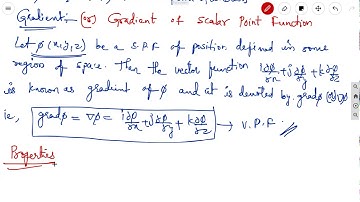 Gradient:- (or) Gradient of Scalar Point Function
Let φ(x,y,z) be a S.P.F of position defined in some
region of space. Then the vector function i∂φ/∂x + j∂φ/∂y + k∂φ/∂z
is known as gradient of φ and it is denoted by grad φ (or) ∇φ
ie, grad φ = ∇φ = i∂φ/∂x + j∂φ/∂y + k∂φ/∂z → V.P.F.
Properties